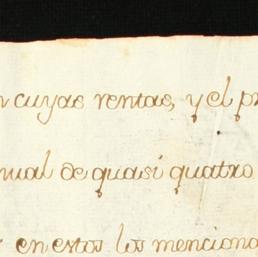 n cuyas rentas, y el pr
nual de quasi quatro
en estos los menciona